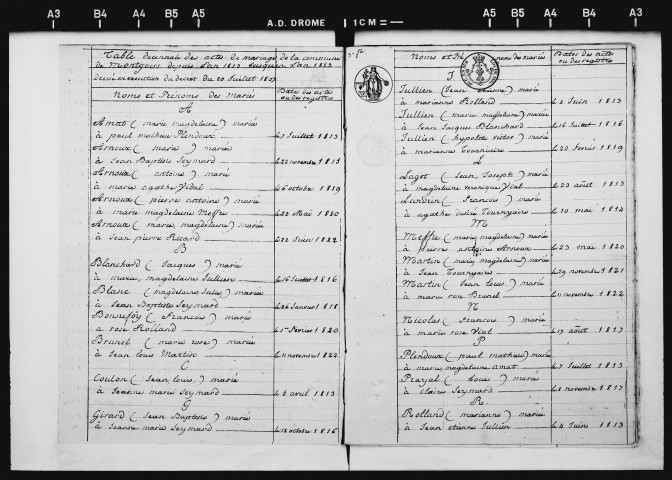 A3 B4 A4 B5 A5 A.D. DROME 1CM= A5 B5 A4 B4 A3
Table decennale des actes de mariage de la commune
de Montguers depuis l'an 1813 jusqu'en l'an 1822
dressé en execution du decret du 20 Juillet 1807
Noms et Prénoms des mariés
Dates des actes
ou des registres
A
Amat (marie magdelaine) mariée
à paul mathieu Plendoux le 7 Juillet 1813
Arnoux (marie) mariée
à Jean Baptiste Seymard le 22 novembre 1815
Arnoux (antoine) marié
à marie agathe Vidal le 6 octobre 1819
Arnoux (pierre antoine) marié
à marie magdelaine Meffre le 23 Mai 1820
Arnoux (marie magdelaine) mariée
à Jean pierre Ricard le 22 Juin 1822
B
Blanchard (Jacques) marié
à marie magdelaine Jullien le 16 Juillet 1816
Blanc (magdelaine Julie) mariée
à Jean Baptiste Seymard le 26 Janvier 1818
Bonnefoy (François) marié
à rose Rolland le 1er Fevrier 1820
Brunel (marie rose) mariée
à Jean Louis Martin le 11 novembre 1822
C
Coulon (Jean Louis) marié
à Jeanne marie Seymard le 5 avril 1813
G
Girard (Jean Baptiste) marié
à Jeanne marie Seymard le 12 octobre 1816
Noms et Prénoms des mariés
Dates des actes
ou des registres
J
Jullien (Jean etienne) marié
à marianne Rolland le 4 Juin 1813
Jullien (marie magdelaine) mariée
à Jean Jacques Blanchard le 16 Juillet 1816
Jullien (hypolite victor) marié
à marianne Tourniaire le 22 Fevrier 1819
L
Laget (Jean Joseph) marié
à magdelaine veronique Vial le 23 août 1813
(François) marié
à agathe desiré Tournyaire le 10 mai 1814
M
Meffre (marie magdelaine) mariée
à pierre antoine Arnoux le 23 mai 1820
Martin (marie magdelaine) mariée
à Jean Tournyaire le 29 novembre 1821
Martin (Jean Louis) marié
à marie rose Brunel le 11 novembre 1822
N
Nicolas (François) marié
à marie rose Vial le 17 août 1817
P
Plendoux (paul mathieu) marié
à marie magdelaine amat le 7 Juillet 1813
Prayal (Louis) marié
à claire Seymard le 1 novembre 1817
R
Rolland (marianne) mariée
à Jean etienne Jullien le 4 Juin 1813